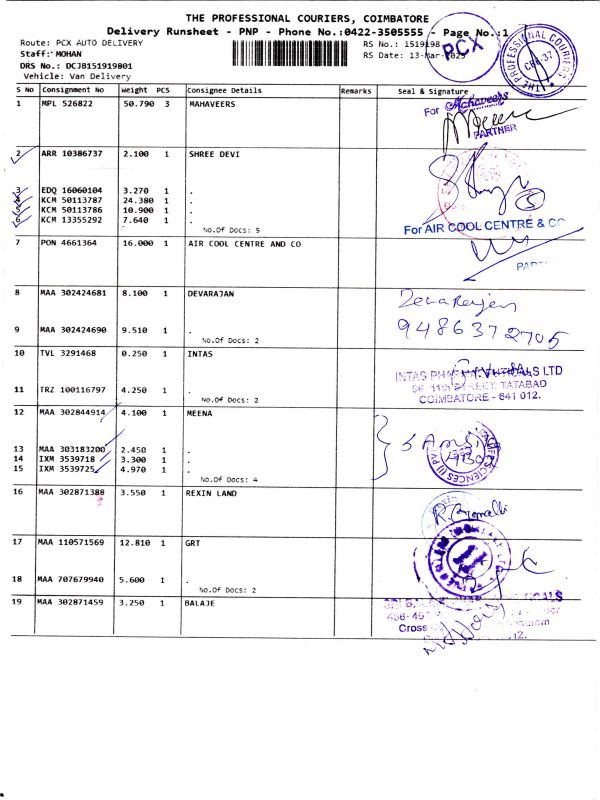 THE PROFESSIONAL COURIERS, COIMBATORE
Delivery Runsheet - PNP - Phone No.:0422-3505555 - Page No.:1
Route: PCX AUTO DELIVERY RS No.: 1519198
Staff: MOHAN RS Date: 13-Mar-2025
DRS No.: DCJB151919801
Vehicle: Van Delivery
PCX
THE PROFESSIONAL COURIERS
CBE-37
S No Consignment No Weight PCS Consignee Details Remarks Seal & Signature
1 MPL 526822 50.790 3 MAHAVEERS
For Mahaveers
PARTNER
2 ARR 10386737 2.100 1 SHREE DEVI
3 EDQ 16060104 3.270 1 .
4 KCM 50113787 24.380 1 .
5 KCM 50113786 10.900 1 .
6 KCM 13355292 7.640 1 .
No.Of Docs: 5
5
For AIR COOL CENTRE & CO
7 PON 4661364 16.000 1 AIR COOL CENTRE AND CO
8 MAA 302424681 8.100 1 DEVARAJAN
Devarajan
9486372705
9 MAA 302424690 9.510 1 .
No.Of Docs: 2
10 TVL 3291468 0.250 1 INTAS
INTAS PHARMACEUTICALS LTD
11TH STREET, TATABAD
COIMBATORE - 641 012.
11 TRZ 100116797 4.250 1 .
No.Of Docs: 2
12 MAA 302844914 4.100 1 MEENA
13 MAA 303183200 2.450 1 .
14 IXM 3539718 3.300 1 .
15 IXM 3539725 4.970 1 .
No.Of Docs: 4
16 MAA 302871388 3.550 1 REXIN LAND
17 MAA 110571569 12.810 1 GRT
18 MAA 707679940 5.600 1 .
No.Of Docs: 2
19 MAA 302871459 3.250 1 BALAJE
Cross